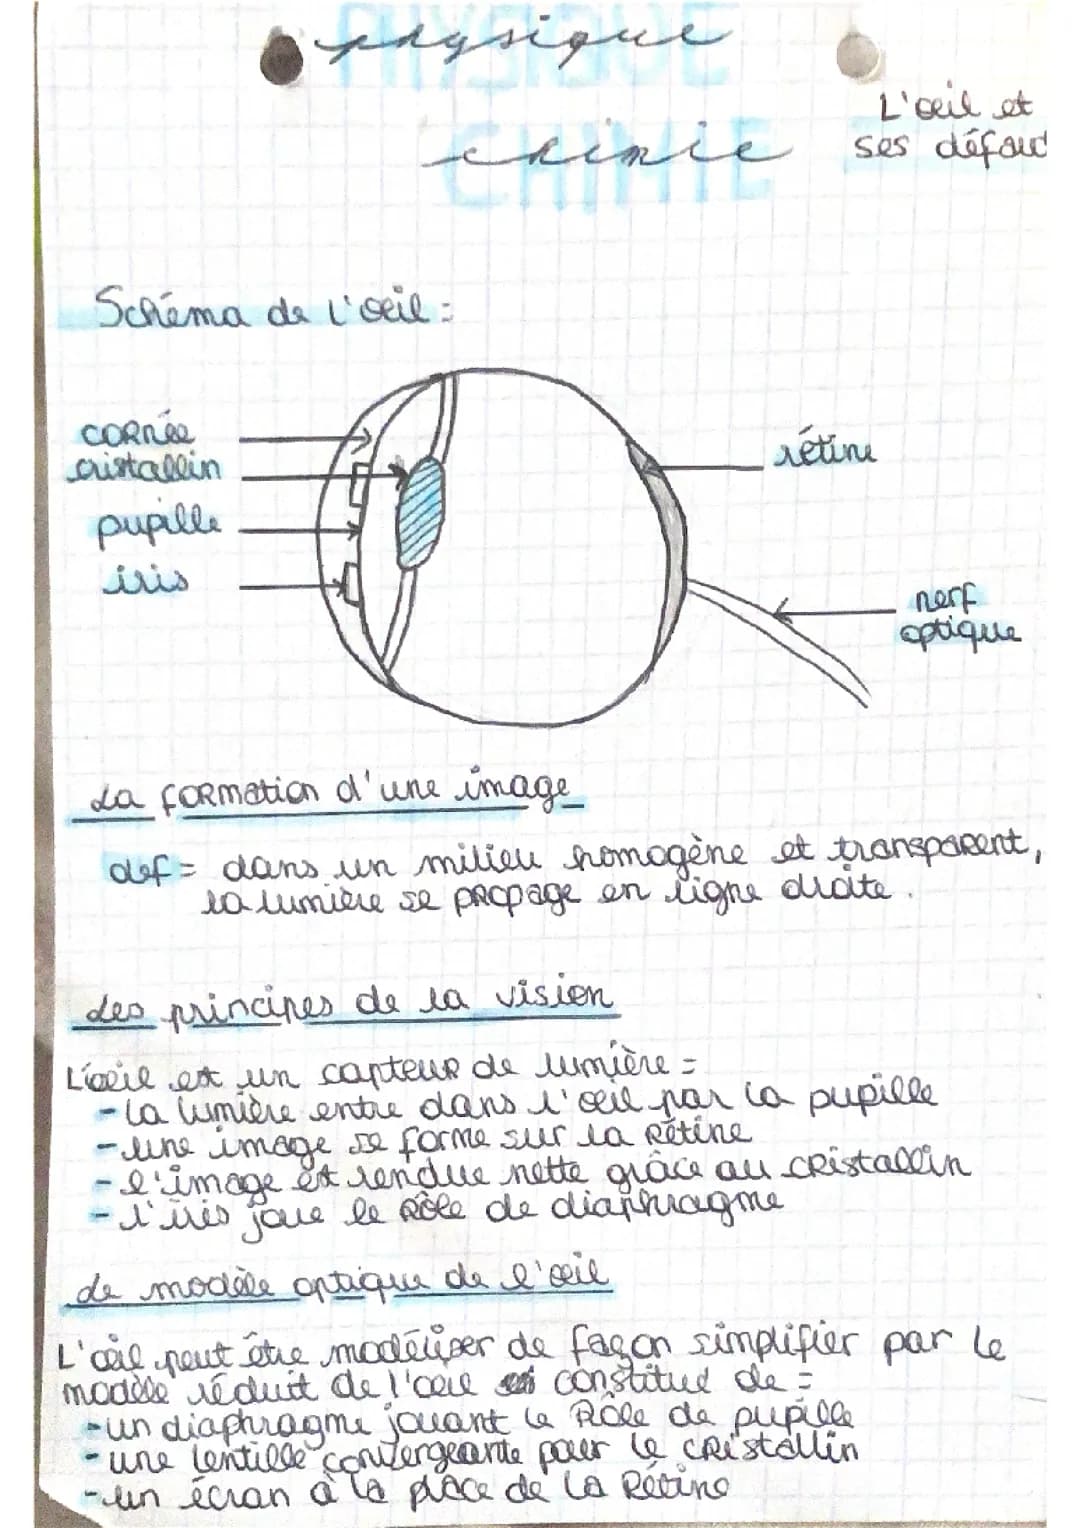 physique
chimie
L'œil et
ses défaut
Schéma de l'œil :
cornée
cristallin
pupille
iris
rétine
nerf
optique
La formation d'une image
def = dans un milieu homogène et transparent,
la lumière se propage en ligne droite.
Les principes de la vision
L'œil est un capteur de lumière =
- la lumière entre dans l'œil par la pupille
- une image se forme sur la rétine
- l'image est rendue nette grâce au cristallin
- l'iris joue le rôle de diaphragme
Le modèle optique de l'œil
L'œil peut être modéliser de façon simplifier par le
modèle réduit de l'œil constitué de =
- un diaphragme jouant le rôle de pupille
- une lentille convergeante pour le cristallin
- un écran à la place de la rétine